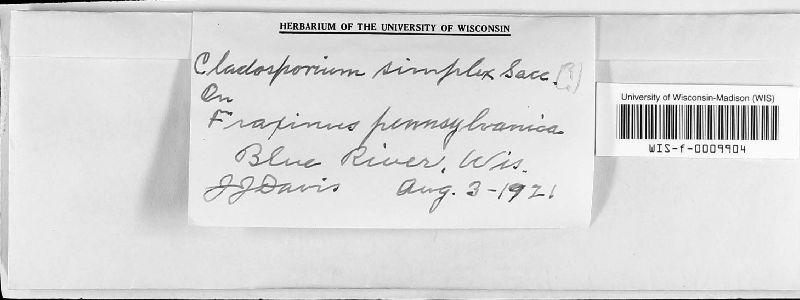 HERBARIUM OF THE UNIVERSITY OF WISCONSIN
Cladosporium simplex Sacc. [?]
On
Fraxinus pennsylvanica
Blue River, Wis.
JJDavis Aug. 3-1921
University of Wisconsin-Madison (WIS)
WIS-f-0009904